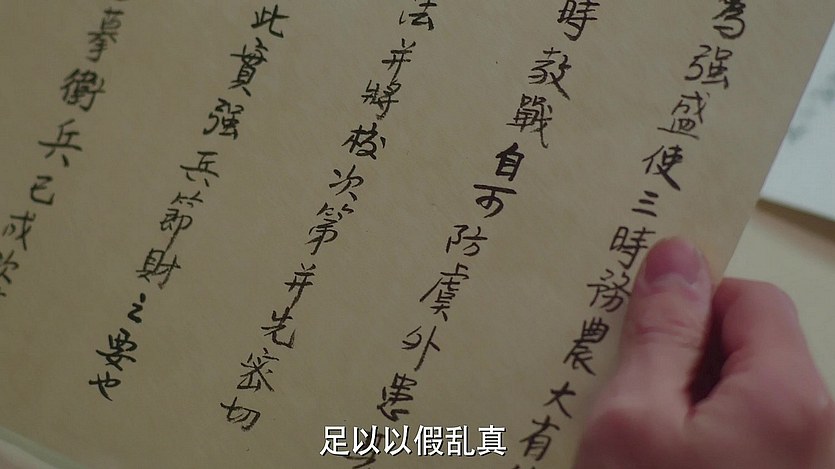 為强盛使三時務農大有
時教戰自可防虞外患
法并將校次第并先密切
此實强兵節財之要也
募衛兵已成次
足以以假乱真